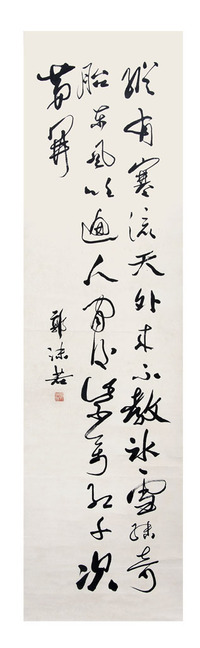 纵有寒流天外来不教冰雪结奇
胎东风吹遍人间后紫万红千次
第开
郭沫若